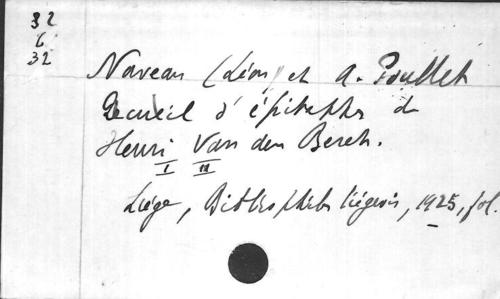 32
6
32
Naveau (Léon) et A. Poullet
Recueil d'épitaphes de
Henri Van den Berch.
I II
Liège, Bibliophiles liégeois, 1925, fol.